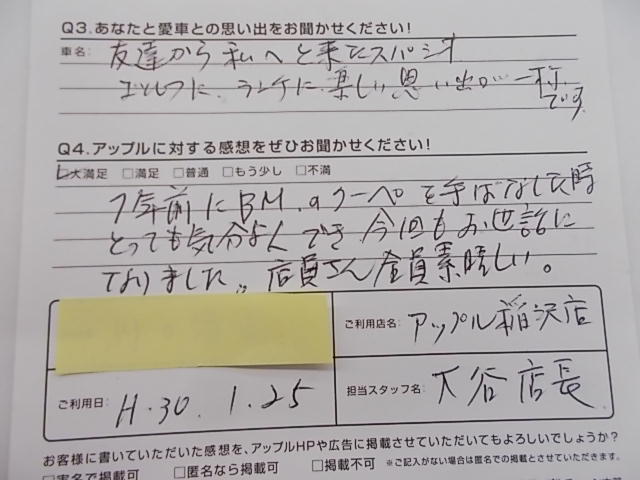 Q3.あなたと愛車との思い出をお聞かせください!
車名: 友達から私へと来たスパシオ
ゴルフに、ランチに楽しい思い出が一杯
です。
Q4.アップルに対する感想をぜひお聞かせください!
☑大満足 □満足 □普通 □もう少し □不満
7年前にBM.のクーペを手ばなした時
とっても気分よくでき今回もお世話に
なりました。店員さん全員素晴しい。
ご利用店名: アップル稲沢店
ご利用日: H.30.1.25
担当スタッフ名: 大谷店長
お客様に書いていただいた感想を、アップルHPや広告に掲載させていただいてもよろしいでしょうか?
□実名で掲載可 □匿名なら掲載可 □掲載不可 ※ご記入がない場合は匿名での掲載とさせていただきます。